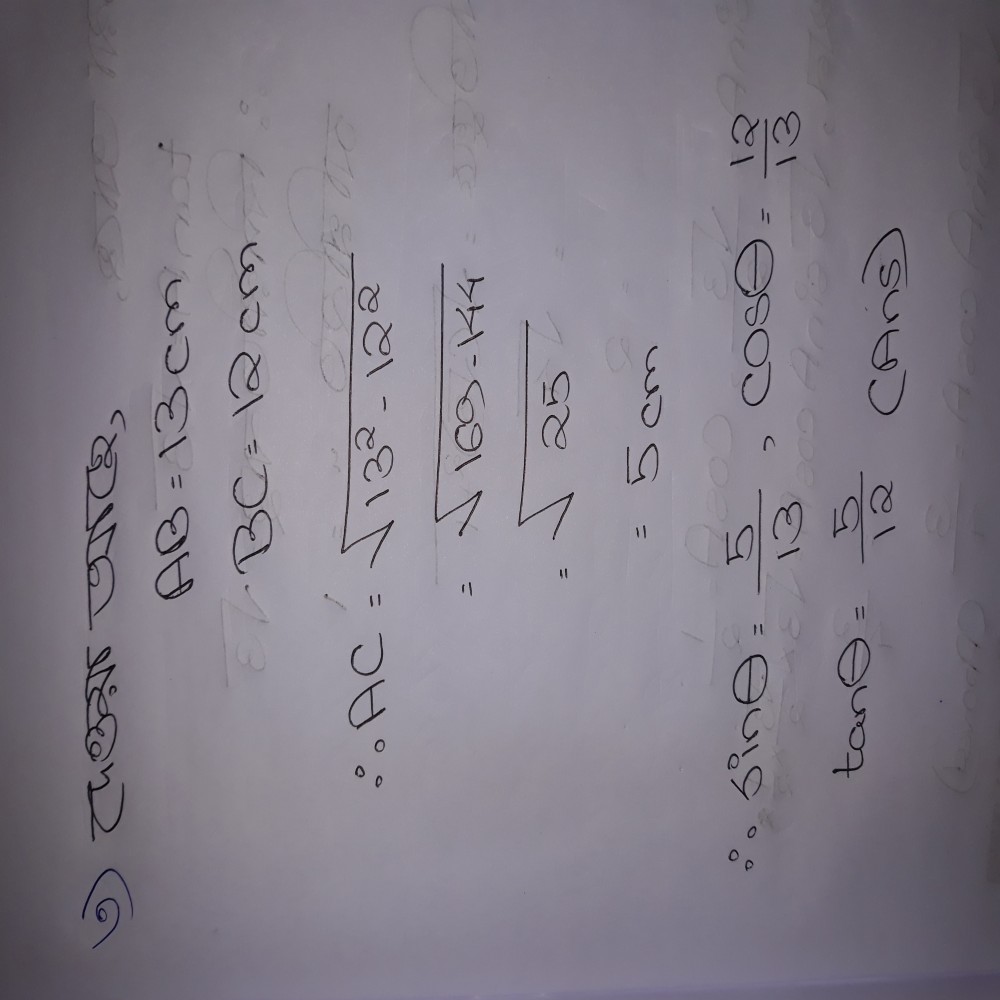 ৩) দেওয়া আছে,
AB = 13 cm
BC = 12 cm
∴ AC = √13² - 12²
= √169 - 144
= √25
= 5 cm
∴ sinθ = 5/13 , cosθ = 12/13
tanθ = 5/12 (Ans)